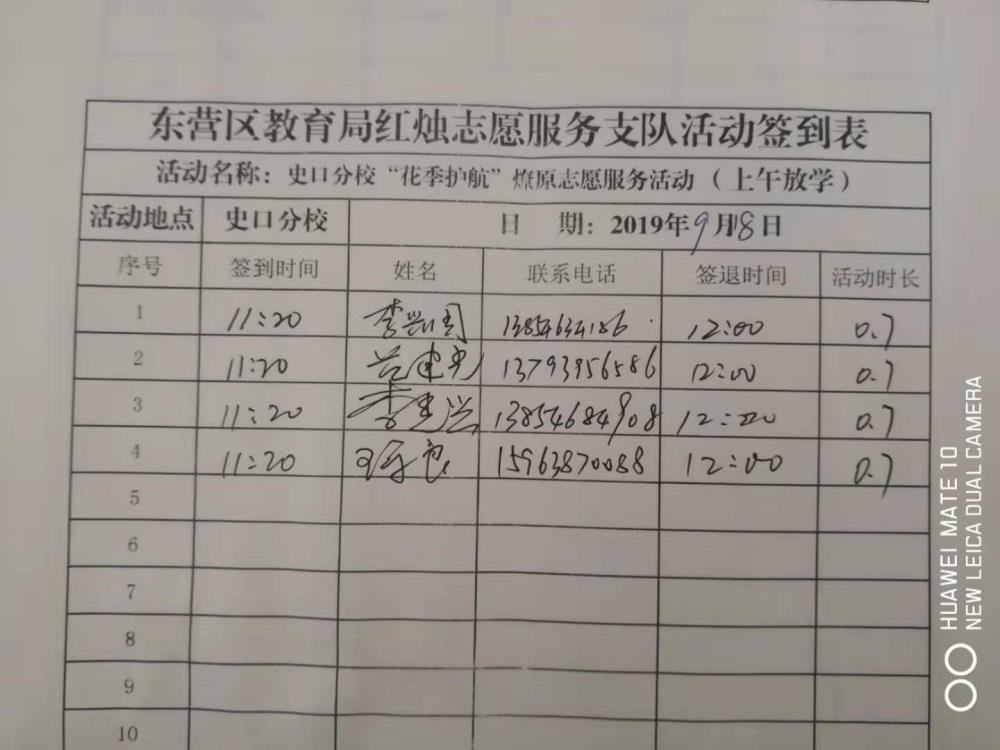 东营区教育局红烛志愿服务支队活动签到表
活动名称：史口分校“花季护航”燎原志愿服务活动（上午放学）
活动地点 史口分校 日 期：2019年9月18日
序号 签到时间 姓名 联系电话 签退时间 活动时长
1 11:20 李兴国 12:00 0.7
2 11:20 13793956586 12:00 0.7
3 11:20 李建兴 13854684908 12:00 0.7
4 11:20 15963870088 12:00 0.7
5
6
7
8
9
10
HUAWEI MATE 10
NEW LEICA DUAL CAMERA